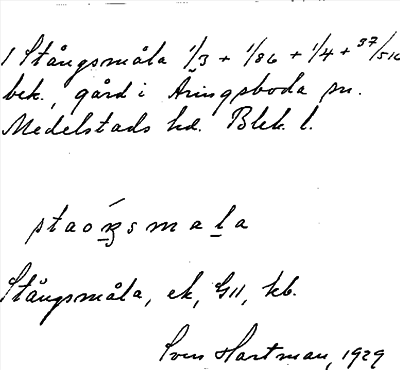 1 Stångsmåla 1/3 + 1/86 + 1/4 + 37/516
bek., gård i Äringsboda sn.
Medelstads hd. Blek. l.
staoŋsmala
Stångsmåla, ek, G11, kb.
Sven Hartman, 1929